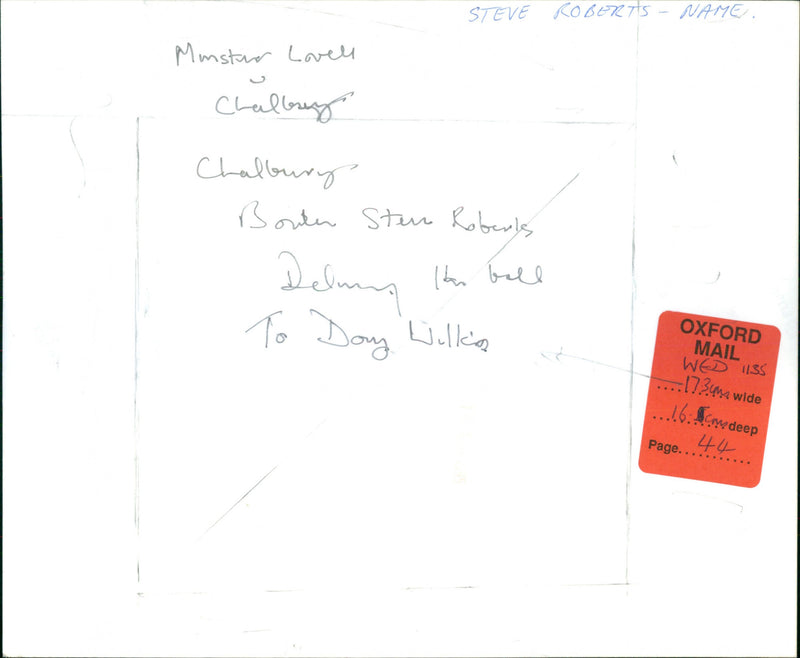 STEVE ROBERTS - NAME.
Minster Lovell
v
Chalbury
Chalbury
Bowler Steve Roberts
Delivering the ball
To Doug Wilkins
OXFORD
MAIL
WED 1135
173cms wide
16.5cms deep
Page 44